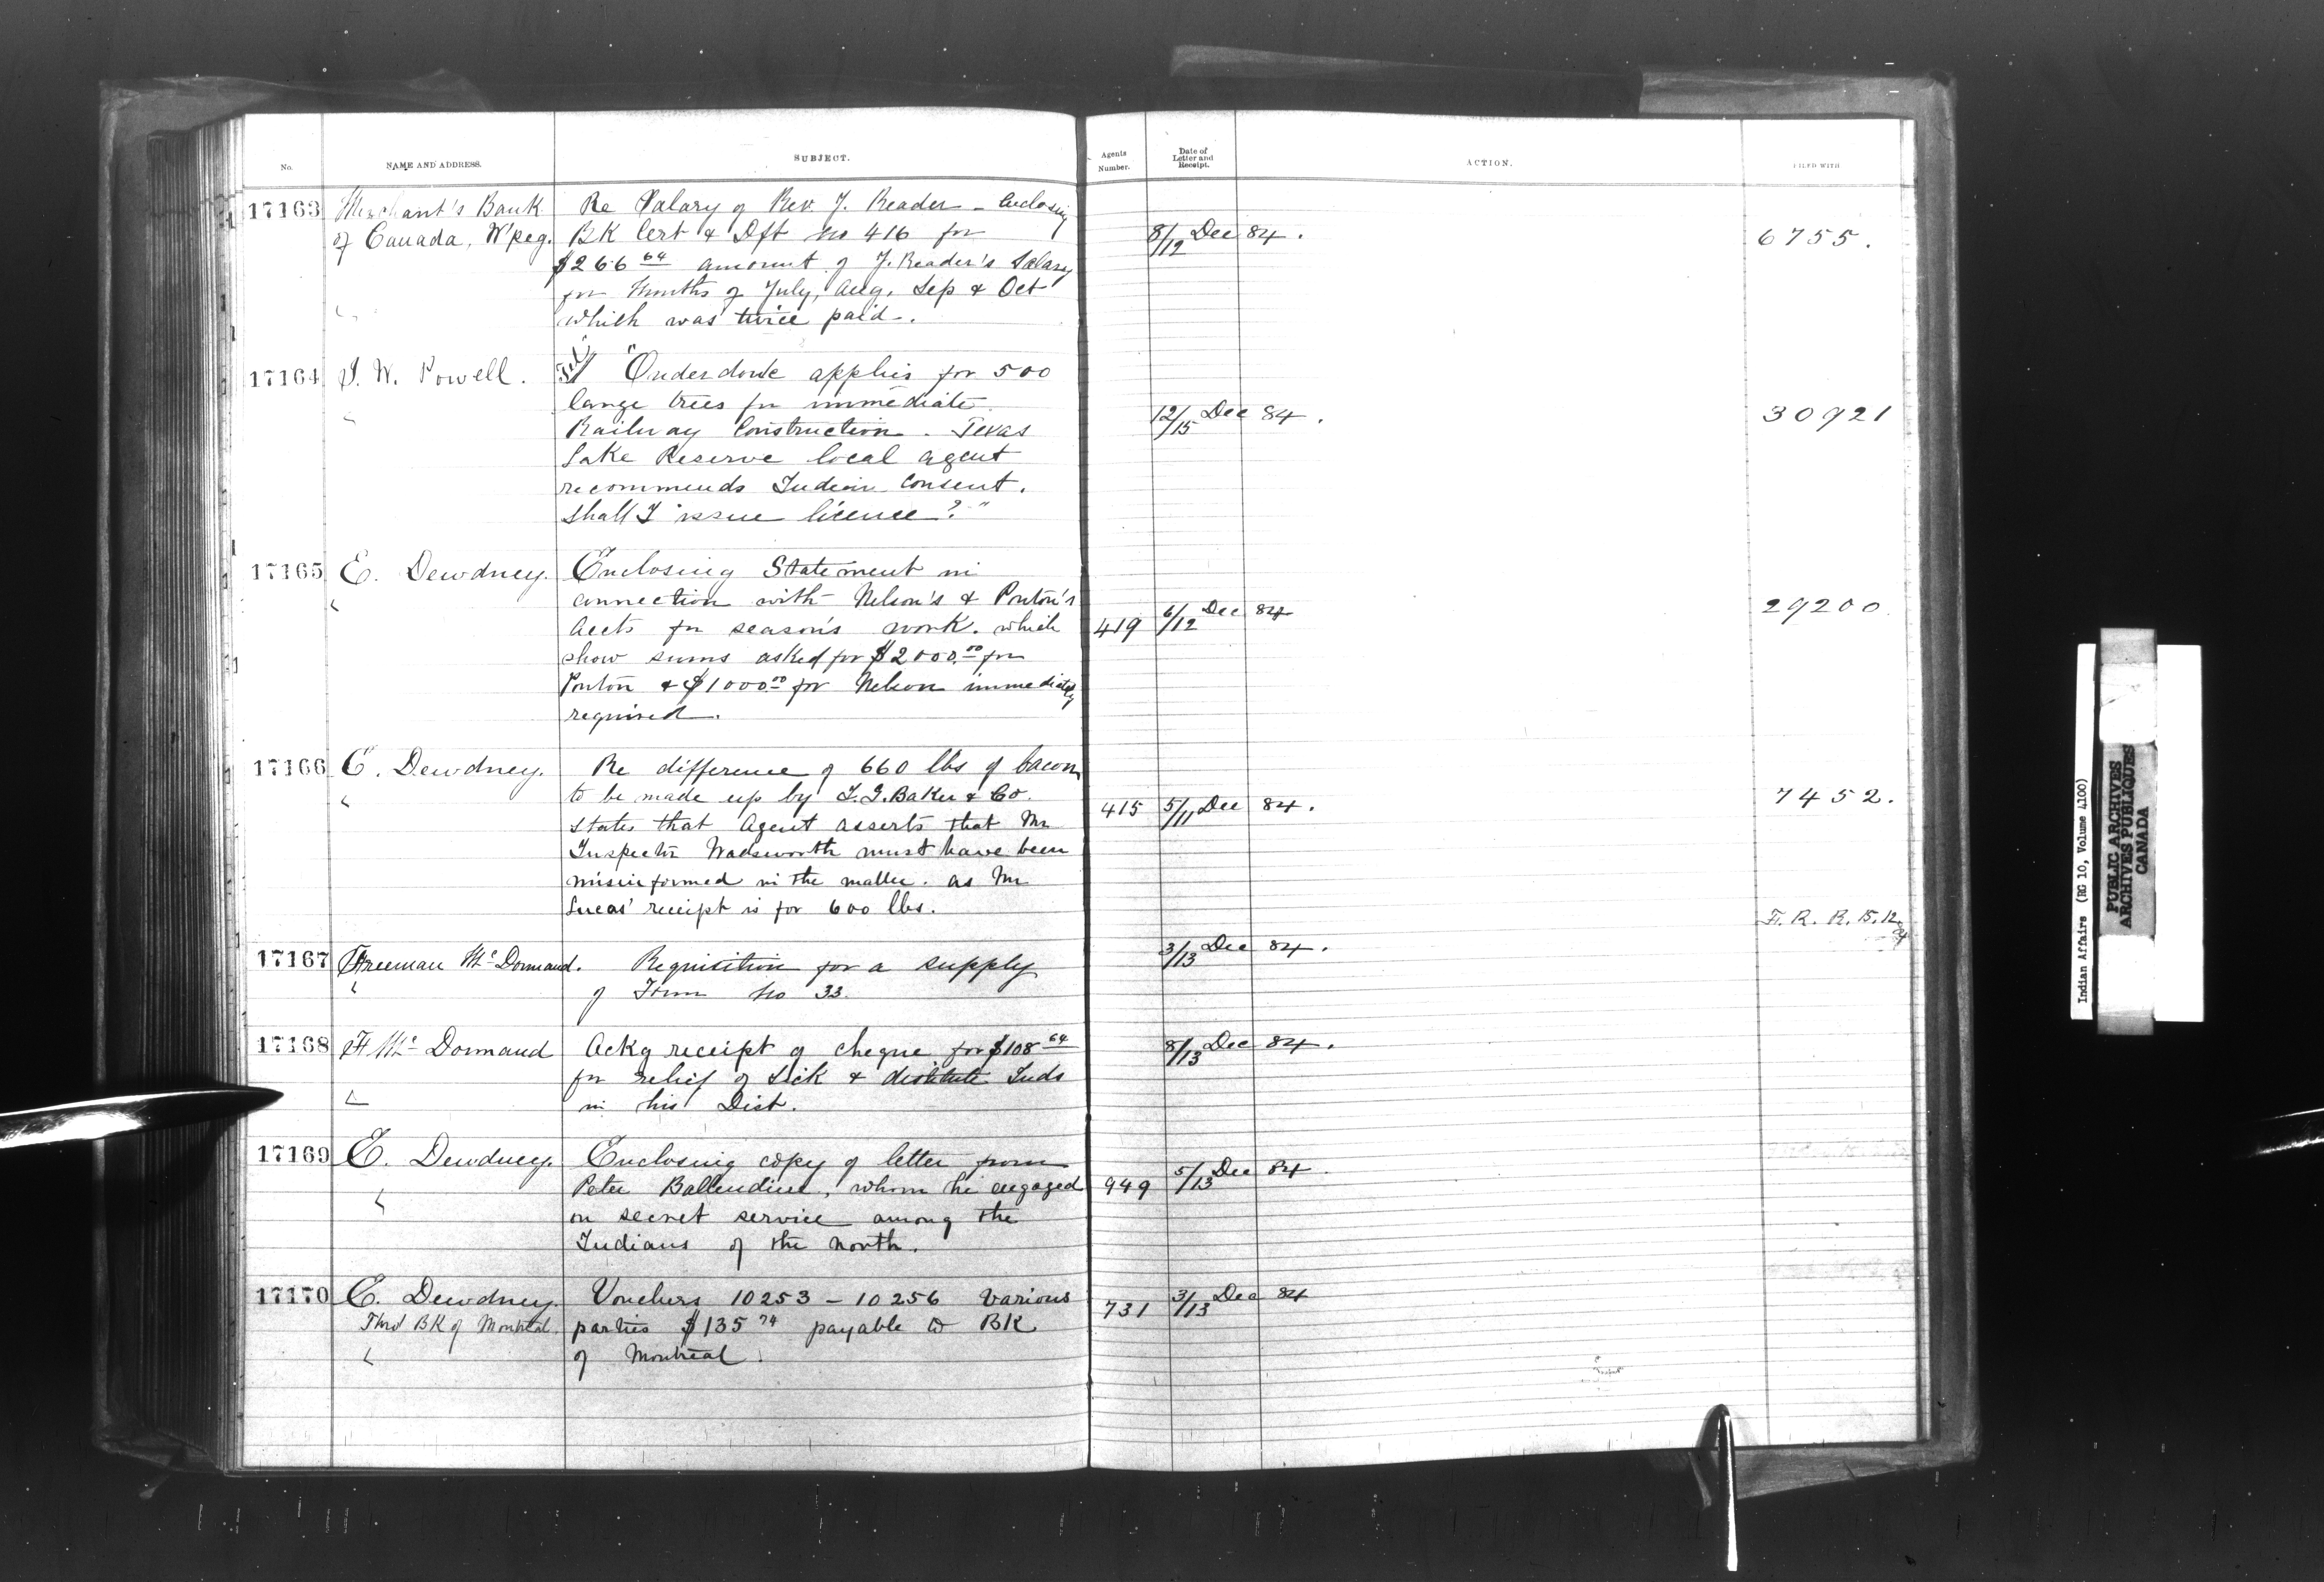 No.
NAME AND ADDRESS.
SUBJECT.
Agents Number.
Date of Letter and Receipt.
ACTION.
FILED WITH
17163
Merchant's Bank
of Canada, W'peg.
Re Salary of Rev. J. Reader - Enclosing
BK Cert & Dft No 416 for
$266 64 amount of J. Reader's Salary
for Months of July, Aug, Sep & Oct
which was twice paid.
8/12 Dec 84.
6755.
17164
I. W. Powell.
"Onderdonk applies for 500
large trees for immediate
Railway Construction. Texas
Lake Reserve local agent
recommends Indian Consent.
Shall I issue licence?"
12/15 Dec 84.
30921
17165
E. Dewdney.
Enclosing Statement in
connection with Nelson's & Ponton's
Accts for season's work. which
show sums asked for $2000.00 for
Ponton & $1000 00 for Nelson immediately
required.
419
6/12 Dec 84
29200
17166
E. Dewdney.
Re difference of 660 lbs of bacon
to be made up by I. G. Baker & Co.
States that Agent asserts that Mr
Inspector Wadsworth must have been
misinformed in the matter. as Mr
Lucas' receipt is for 600 lbs.
415
5/11 Dec 84.
7452.
F. R. R. 15.12
84
17167
Freeman McDormand.
Requisition for a supply
of Form No 33.
3/13 Dec 84.
17168
F. Mc Dormand
Ackg receipt of cheque for $108 64
for relief of Sick & destitute Inds
in his Dist.
8/13 Dec 84.
17169
E. Dewdney.
Enclosing copy of letter from
Peter Ballendine, whom he engaged
on secret service among the
Indians of the North.
949
5/13 Dec 84.
17170
E. Dewdney.
Thro' BK of Montreal.
Vouchers 10253 - 10256 various
parties $135 74 payable to BK
of Montreal.
731
3/13 Dec 84
Indian Affairs (RG 10, Volume 4100)
PUBLIC ARCHIVES
ARCHIVES PUBLIQUES
CANADA